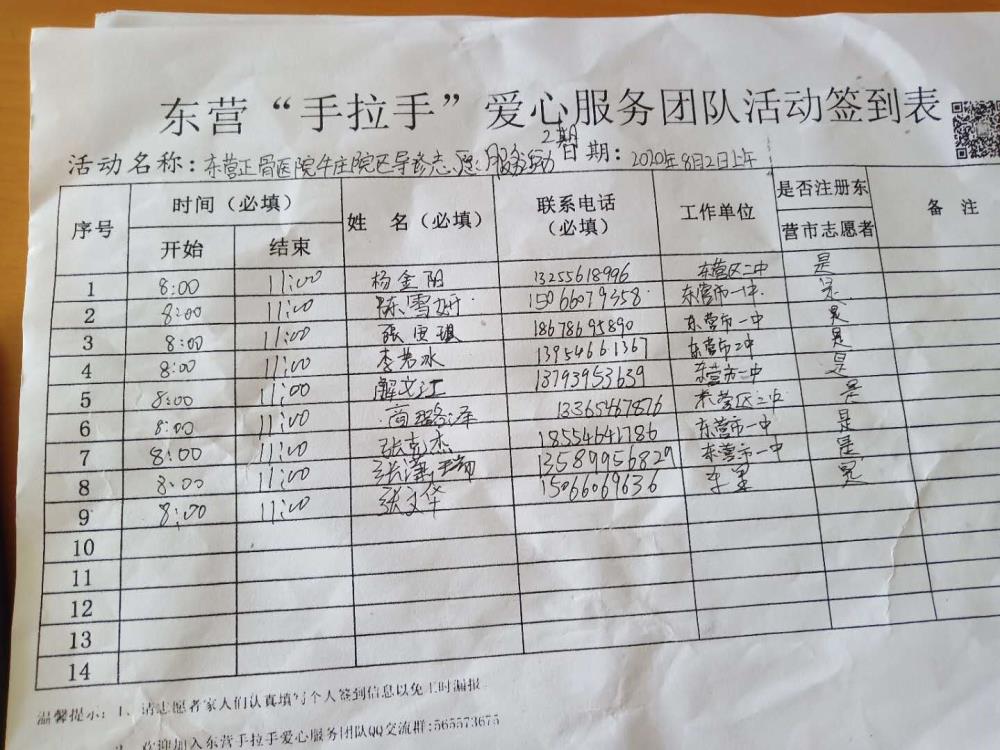 东营“手拉手”爱心服务团队活动签到表
2期
活动名称：东营正骨医院牛庄院区导诊志愿服务活动 日期：2020年8月2日上午
序号 时间（必填） 姓 名（必填） 联系电话（必填） 工作单位 是否注册东营市志愿者 备 注
开始 结束
1 8:00 11:00 杨金阳 13255618996 东营区二中 是
2 8:00 11:00 陈雪妍 15066079358 东营市一中 是
3 8:00 11:00 张雯琪 18678695890 东营市一中 是
4 8:00 11:00 李若冰 13954661367 东营市二中 是
5 8:00 11:00 解文江 13793953639 东营市二中 是
6 8:00 11:00 商璐泽 13365467876 东营区二中 是
7 8:00 11:00 张克杰 18554641786 东营市一中 是
8 8:00 11:00 张潇 13589956829 东营市一中 是
9 8:00 11:00 张文华 15066069636 是
10
11
12
13
14
温馨提示：1、请志愿者家人们认真填写个人签到信息以免工时漏报
2、欢迎加入东营手拉手爱心服务团队QQ交流群:565573675